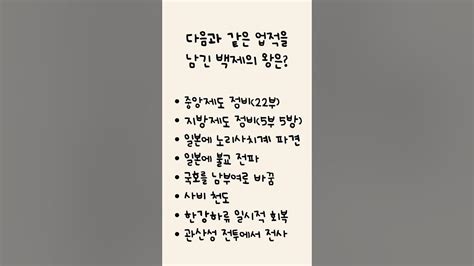 다음과 같은 업적을
남긴 백제의 왕은?
• 중앙제도 정비(22부)
• 지방제도 정비(5부 5방)
• 일본에 노리사치계 파견
• 일본에 불교 전파
• 국호를 남부여로 바꿈
• 사비 천도
• 한강하류 일시적 회복
• 관산성 전투에서 전사